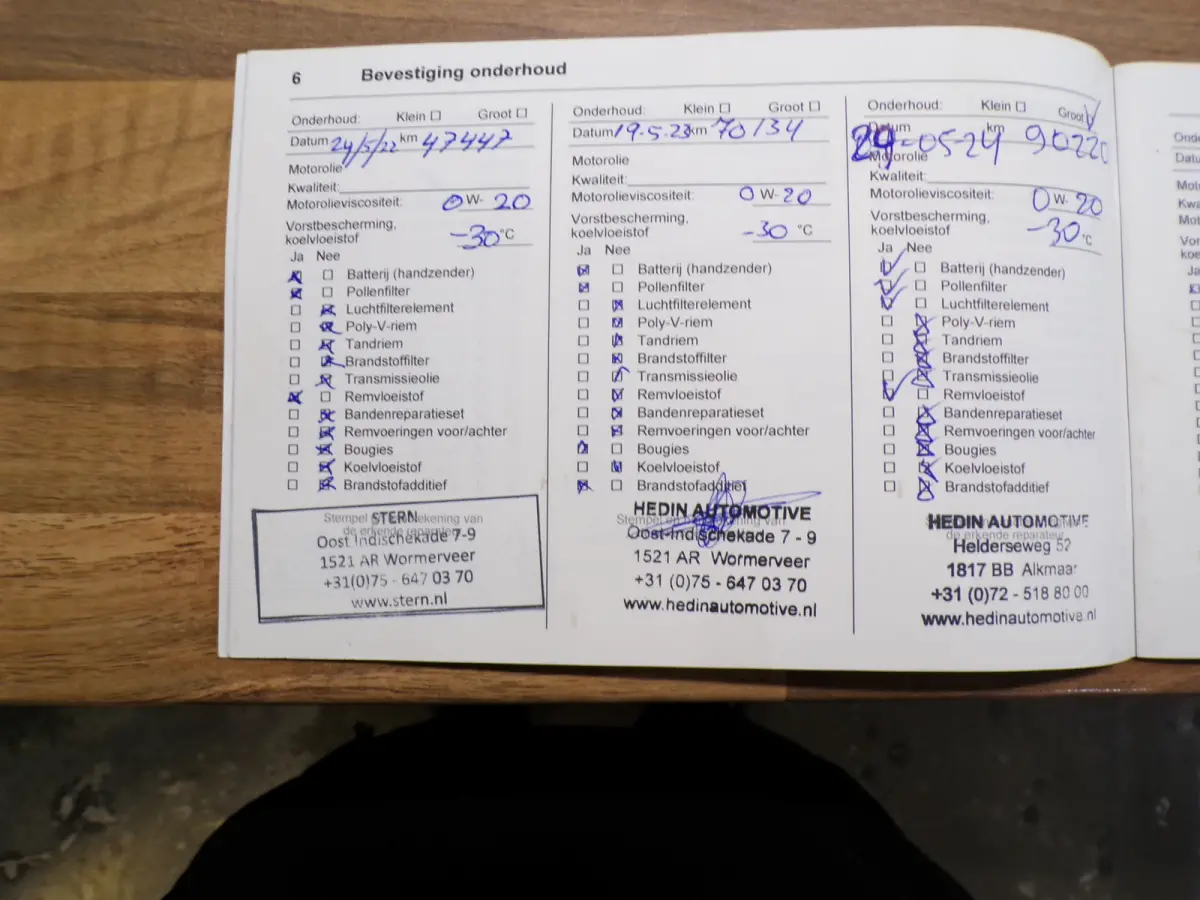 6 Bevestiging onderhoud
Onderhoud: Klein ☐ Groot ☐
Datum 24/5/22 km 47447
Motorolie
Kwaliteit:
Motorolieviscositeit: 0 W- 20
Vorstbescherming,
koelvloeistof -30 °C
Ja Nee
☒ ☐ Batterij (handzender)
☒ ☐ Pollenfilter
☐ ☒ Luchtfilterelement
☐ ☒ Poly-V-riem
☐ ☒ Tandriem
☐ ☒ Brandstoffilter
☐ ☒ Transmissieolie
☒ ☐ Remvloeistof
☐ ☒ Bandenreparatieset
☐ ☒ Remvoeringen voor/achter
☐ ☒ Bougies
☐ ☒ Koelvloeistof
☐ ☒ Brandstofadditief
Stempel en handtekening van
de erkende reparateur
STERN
Oost Indischekade 7-9
1521 AR Wormerveer
+31(0)75 - 647 03 70
www.stern.nl
Onderhoud: Klein ☐ Groot ☐
Datum 19-5-23 km 70134
Motorolie
Kwaliteit:
Motorolieviscositeit: 0 W- 20
Vorstbescherming,
koelvloeistof -30 °C
Ja Nee
☒ ☐ Batterij (handzender)
☒ ☐ Pollenfilter
☐ ☒ Luchtfilterelement
☐ ☒ Poly-V-riem
☐ ☒ Tandriem
☐ ☒ Brandstoffilter
☐ ☒ Transmissieolie
☐ ☒ Remvloeistof
☐ ☒ Bandenreparatieset
☐ ☒ Remvoeringen voor/achter
☒ ☐ Bougies
☐ ☒ Koelvloeistof
☒ ☐ Brandstofadditief
Stempel en handtekening van
HEDIN AUTOMOTIVE
Oost-Indischekade 7 - 9
1521 AR Wormerveer
+31 (0)75 - 647 03 70
www.hedinautomotive.nl
Onderhoud: Klein ☐ Groot ☑
Datum 29-05-24 km 90220
Motorolie
Kwaliteit:
Motorolieviscositeit: 0 W- 20
Vorstbescherming,
koelvloeistof -30 °C
Ja Nee
☑ ☐ Batterij (handzender)
☑ ☐ Pollenfilter
☑ ☐ Luchtfilterelement
☐ ☒ Poly-V-riem
☐ ☒ Tandriem
☐ ☒ Brandstoffilter
☐ ☒ Transmissieolie
☑ ☐ Remvloeistof
☐ ☒ Bandenreparatieset
☐ ☒ Remvoeringen voor/achter
☐ ☒ Bougies
☐ ☒ Koelvloeistof
☐ ☒ Brandstofadditief
de erkende reparateur
HEDIN AUTOMOTIVE
Helderseweg 52
1817 BB Alkmaar
+31 (0)72 - 518 80 00
www.hedinautomotive.nl